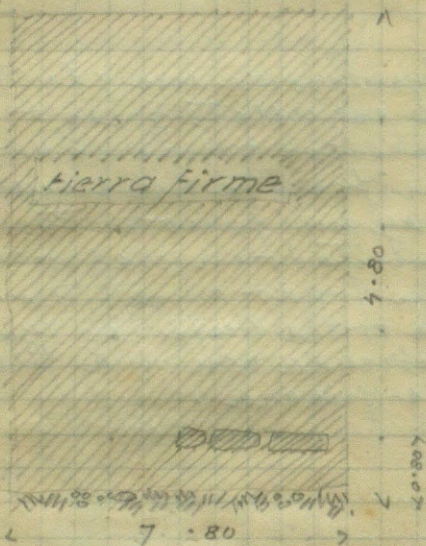 tierra firme
4.80
7.80